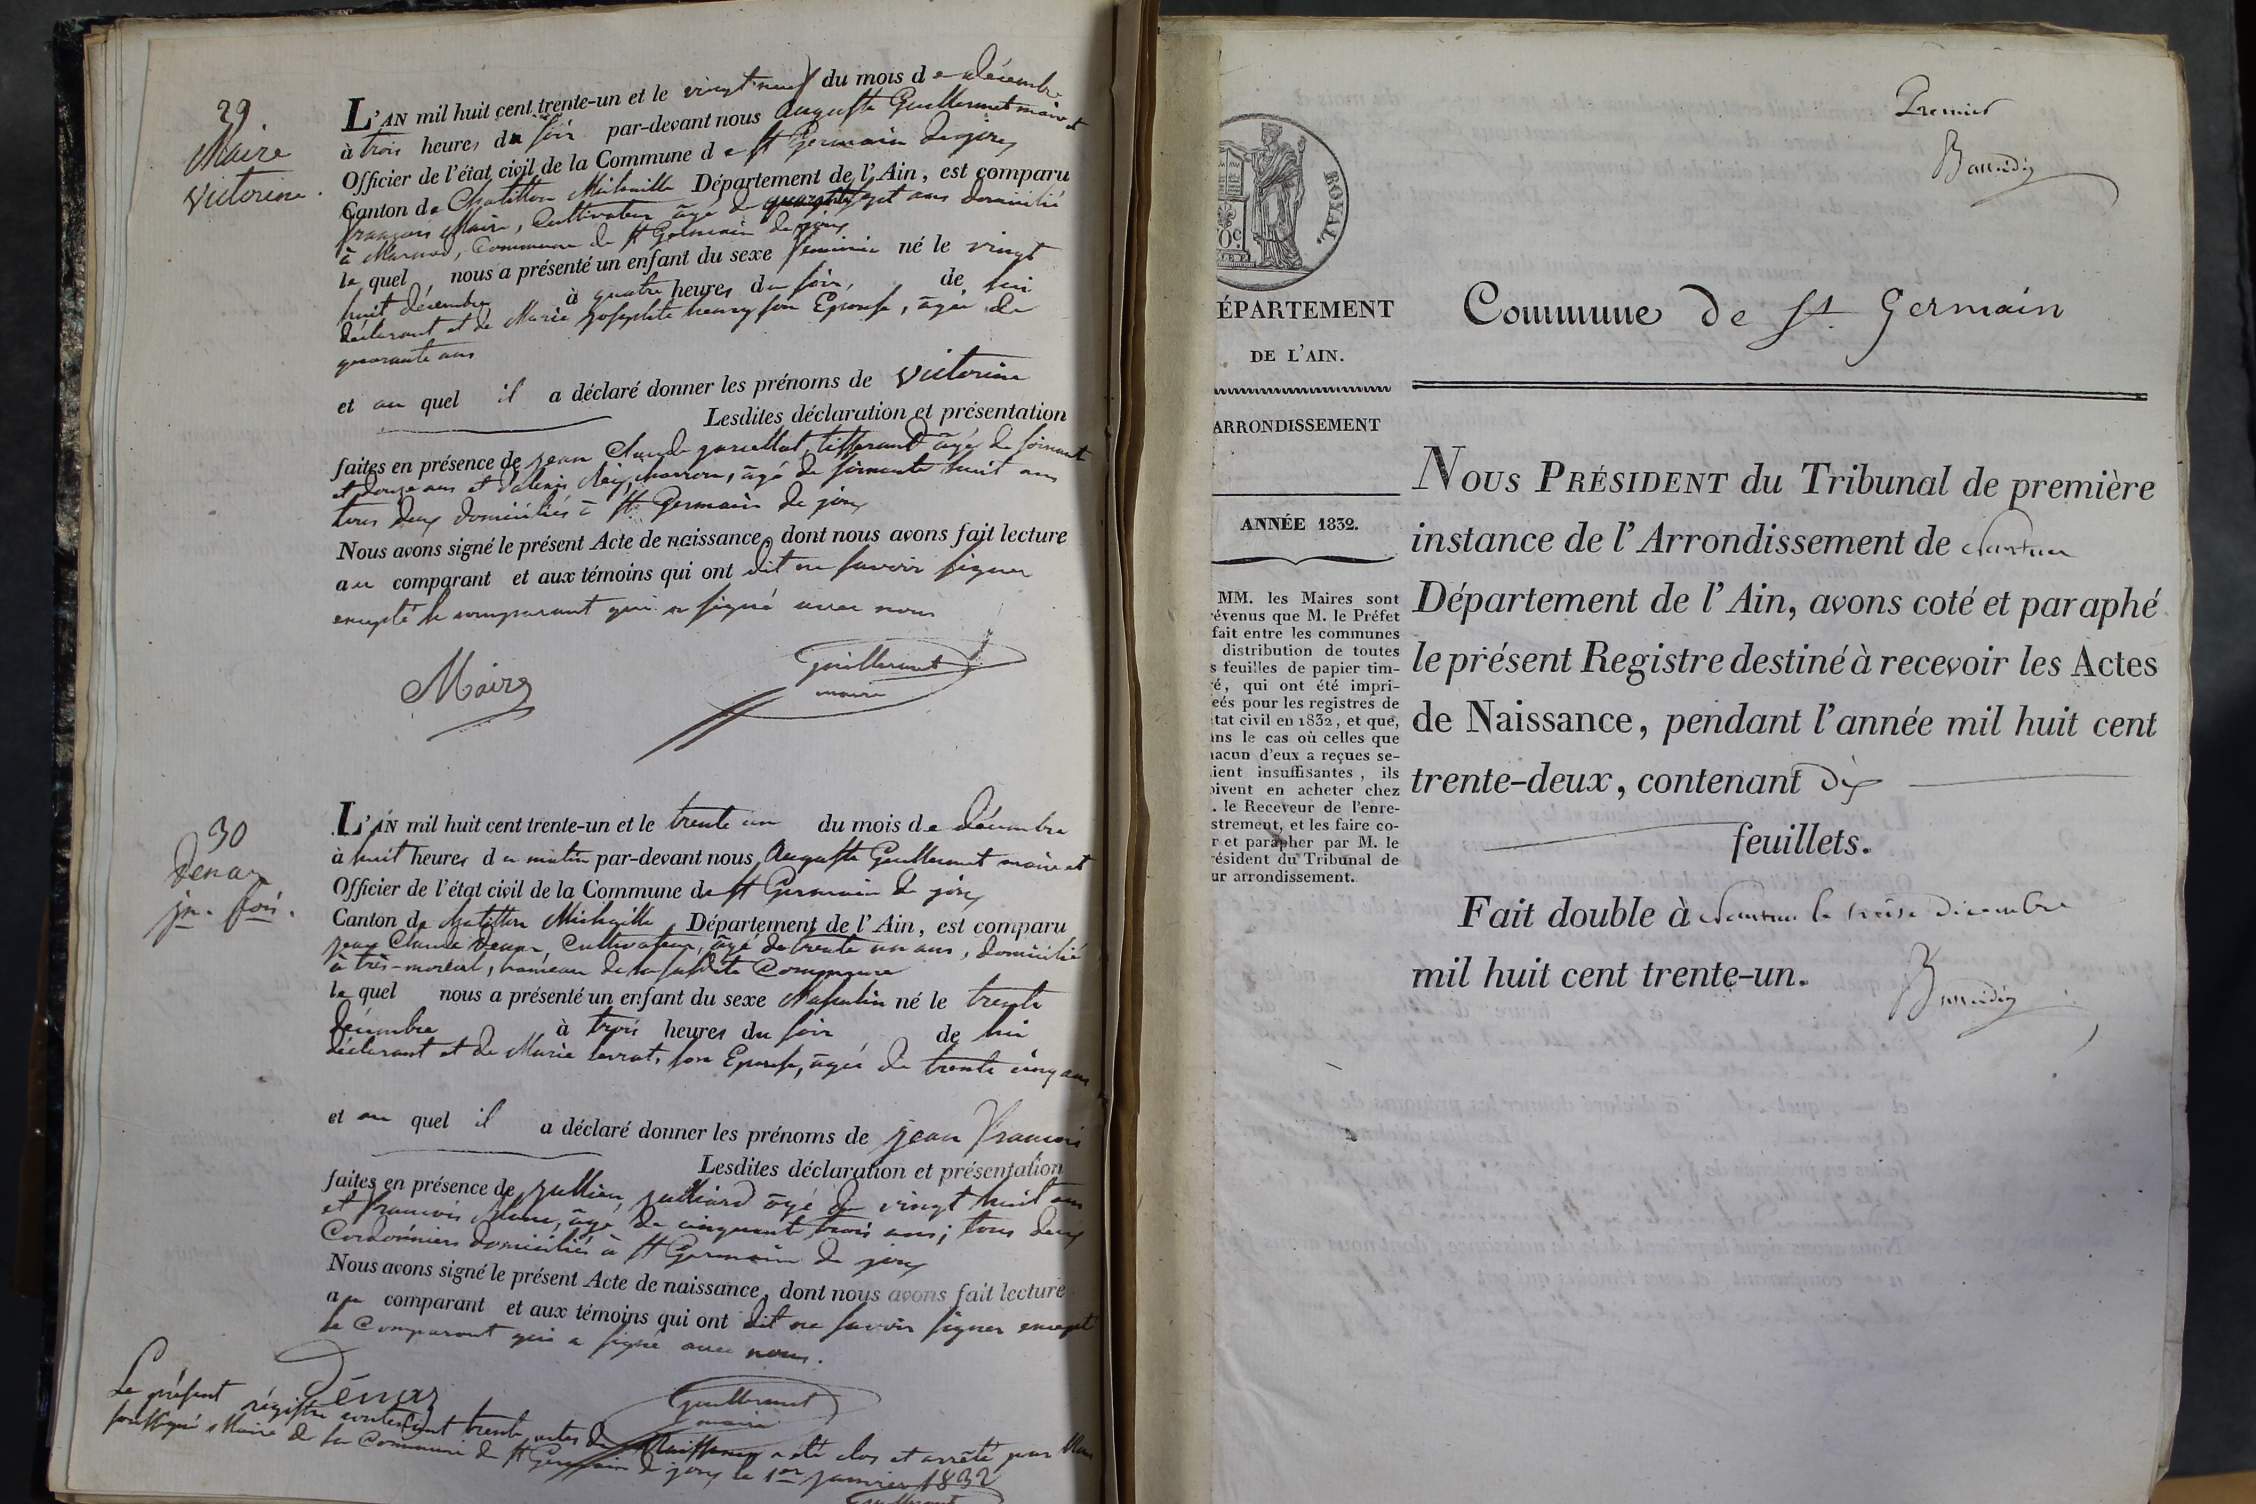 29
Maire
Victorine.
L'AN mil huit cent trente-un et le vingt neuf du mois de décembre
à trois heures du soir par-devant nous Auguste Guillermet maire et
Officier de l'état civil de la Commune de St Germain de joux
Canton de Chatillon Michaille Département de l'Ain, est comparu
françois Maire, Cultivateur âgé de quarante sept ans domicilié
à Marnod, Commune de St Germain de joux
le quel nous a présenté un enfant du sexe féminin né le vingt
huit décembre à quatre heures du soir, de lui
déclarant et de Marie josephte henry son Epouse, âgée de
quarante ans
et au quel il a déclaré donner les prénoms de Victorine
Lesdites déclaration et présentation
faites en présence de jean Claude tisserand âgé de soixante
et douze ans et d'alexis charron, âgé de soixante huit ans
tous deux domiciliés à St Germain de joux
Nous avons signé le présent Acte de naissance, dont nous avons fait lecture
au comparant et aux témoins qui ont dit ne savoir signer
excepté le comparant qui a signé avec nous
Maire
Guillermet
maire
30
Denar
jn. fois.
L'AN mil huit cent trente-un et le trente un du mois de décembre
à huit heures du matin par-devant nous Auguste Guillermet maire et
Officier de l'état civil de la Commune de St Germain de joux
Canton de Chatillon Michaille, Département de l'Ain, est comparu
jean Claude Denar, Cultivateur, âgé de trente un ans, domicilié
à très-moréal, hameau de la susdite Commune
le quel nous a présenté un enfant du sexe Masculin né le trente
décembre à trois heures du soir, de lui
déclarant et de Marie levrat, son Epouse, âgée de trente cinq ans
et au quel il a déclaré donner les prénoms de jean françois
Lesdites déclaration et présentation
faites en présence de Jullien, juilliard âgé de vingt huit ans
et françois âgé de cinquante trois ans; tous deux
Cordonniers domiciliés à St Germain de joux
Nous avons signé le présent Acte de naissance, dont nous avons fait lecture
au comparant et aux témoins qui ont dit ne savoir signer excepté
le Comparant qui a signé avec nous.
Dénar
Guillermet
maire
Le présent régistre contenant trente actes de Naissances a été clos et arrêté par Nous
soussigné Maire de la Commune de St Germain de joux le 1er janvier 1832
Guillermet
Premier
ROYAL.
DÉPARTEMENT
DE L'AIN.
ARRONDISSEMENT
ANNÉE 1832.
MM. les Maires sont
révenus que M. le Préfet
fait entre les communes
distribution de toutes
s feuilles de papier tim-
é, qui ont été impri-
eés pour les registres de
tat civil en 1832, et que,
ans le cas où celles que
hacun d'eux a reçues se-
ient insuffisantes, ils
oivent en acheter chez
. le Receveur de l'enre-
strement, et les faire co-
r et parapher par M. le
résident du Tribunal de
ur arrondissement.
Commune de St. Germain
NOUS PRÉSIDENT du Tribunal de première
instance de l'Arrondissement de Nantua
Département de l'Ain, avons coté et paraphé
le présent Registre destiné à recevoir les Actes
de Naissance, pendant l'année mil huit cent
trente-deux, contenant dix
feuillets.
Fait double à Nantua le treize décembre
mil huit cent trente-un.